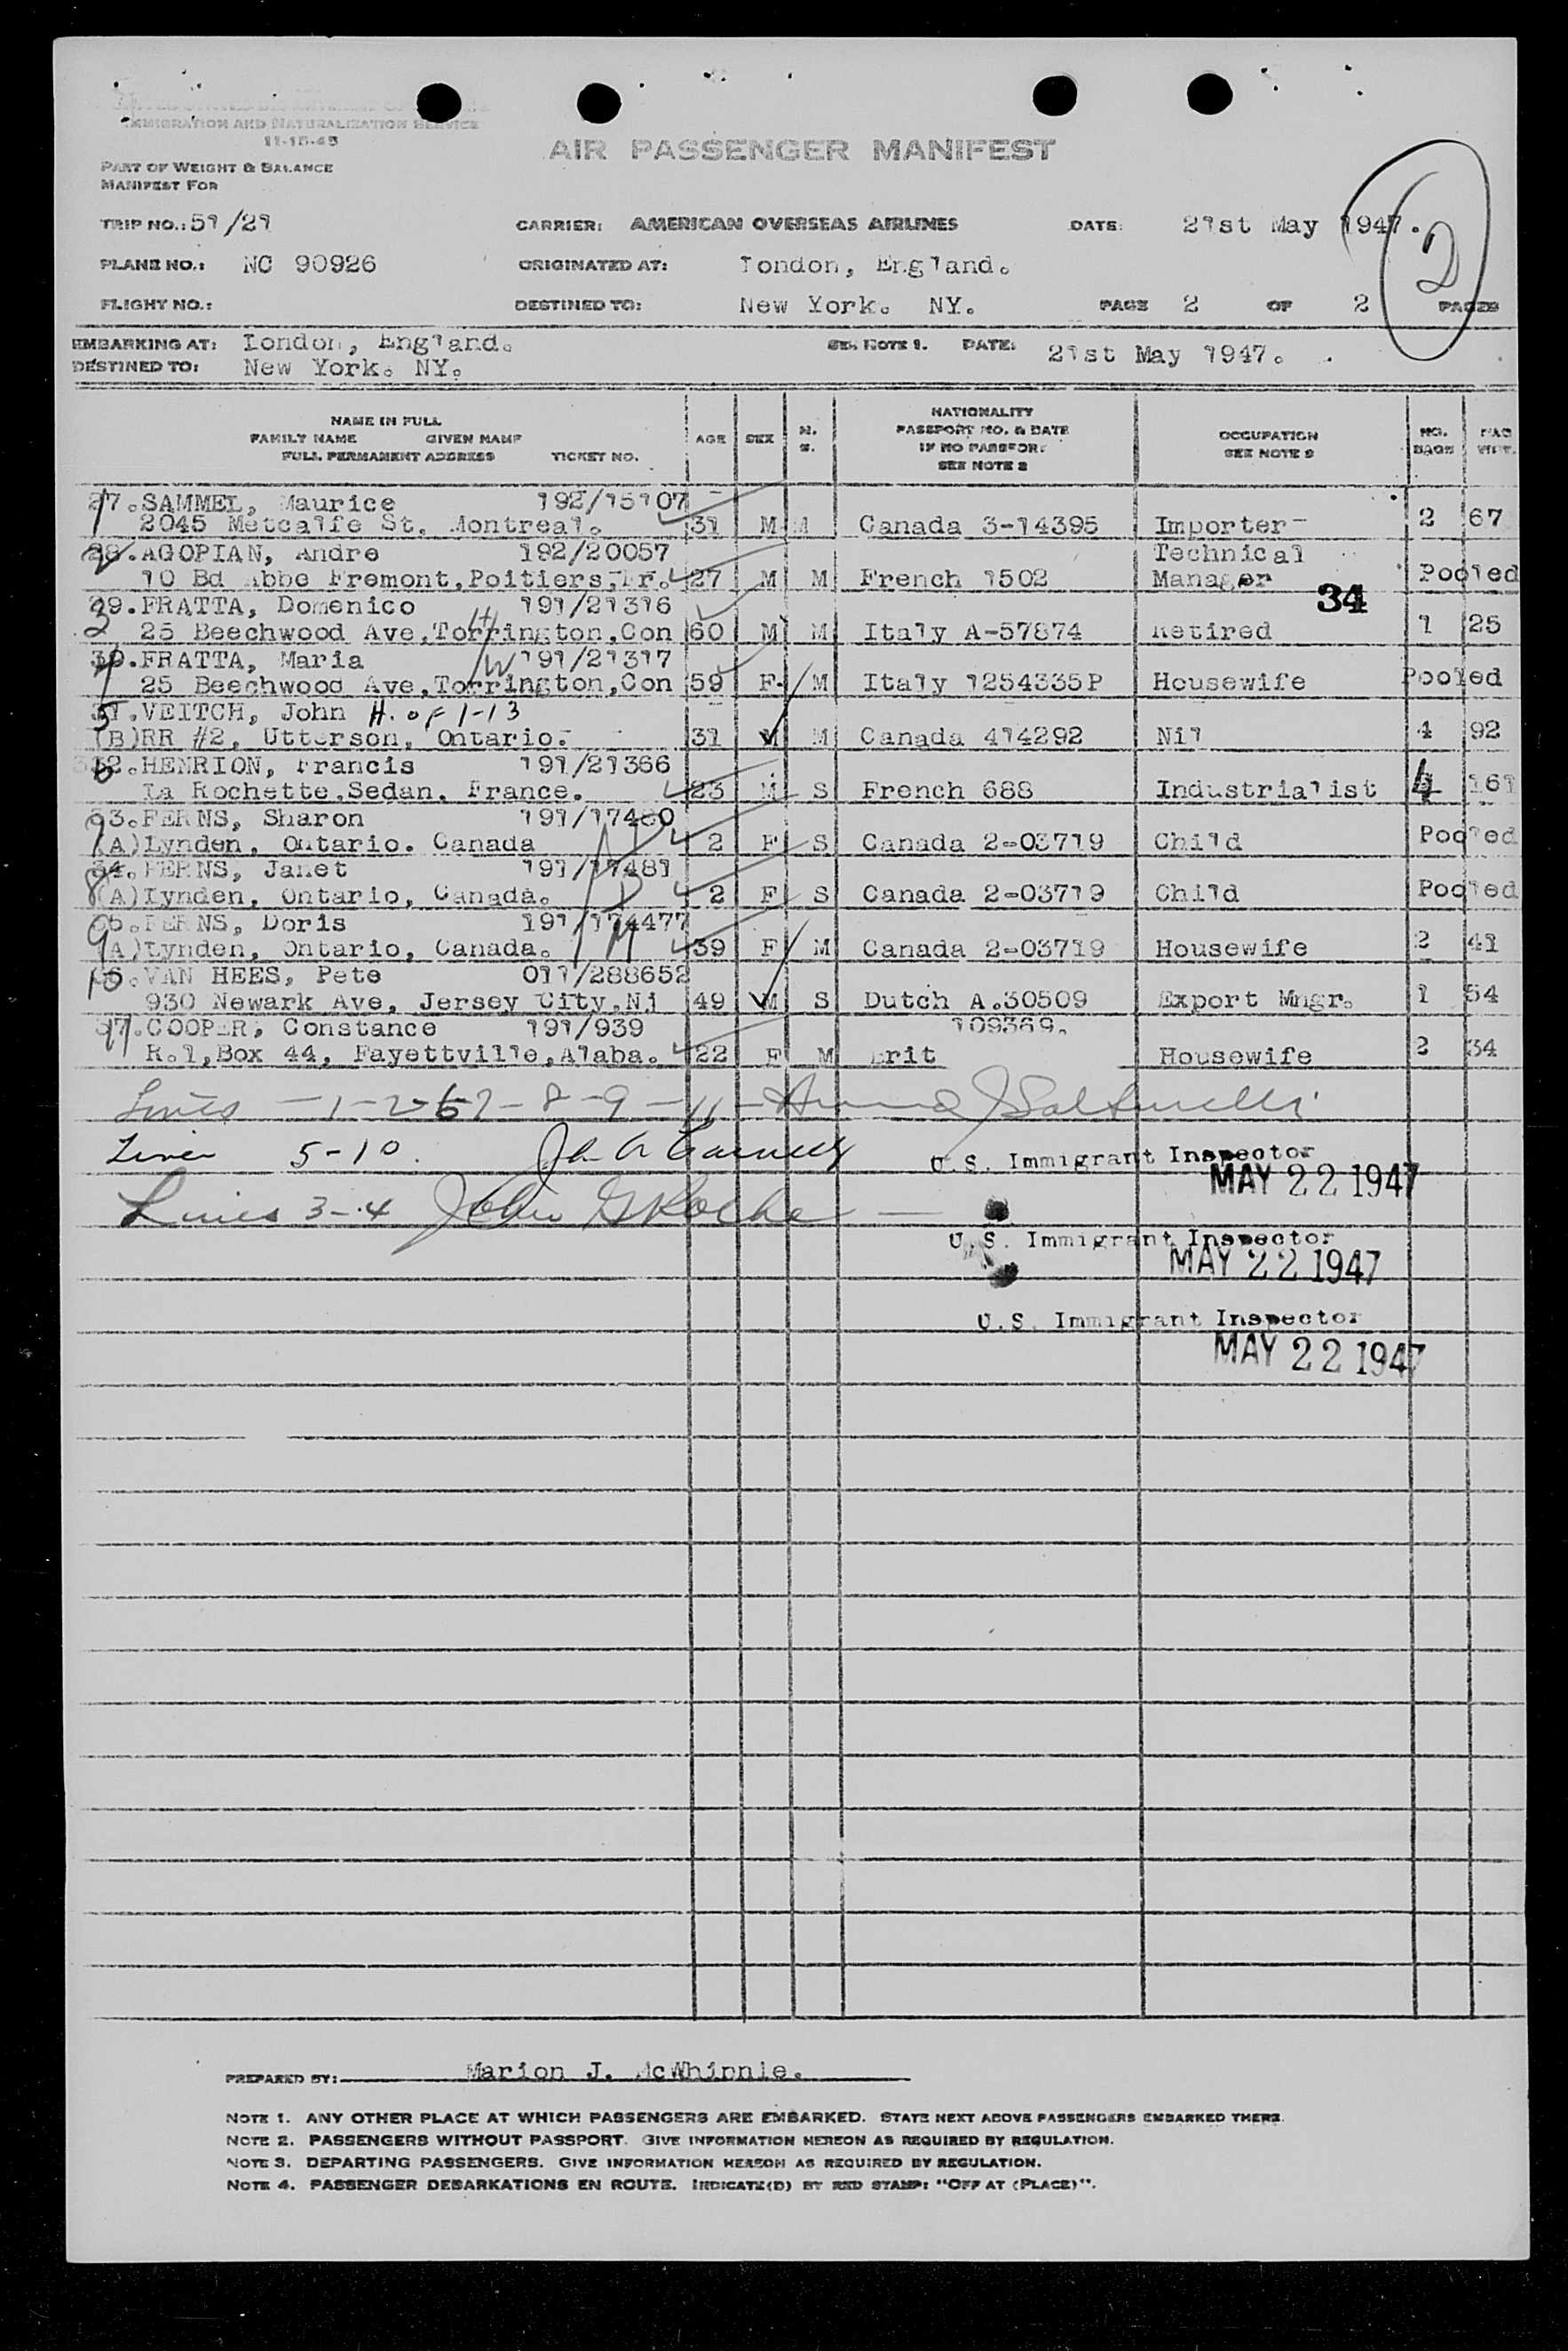 IMMIGRATION AND NATURALIZATION SERVICE
11-15-45
AIR PASSENGER MANIFEST
PART OF WEIGHT & BALANCE
MANIFEST FOR
TRIP NO.: 51/21 CARRIER: AMERICAN OVERSEAS AIRLINES DATE: 21st May 1947.
2
PLANE NO.: NC 90926 ORIGINATED AT: London, England.
FLIGHT NO.: DESTINED TO: New York. NY. PAGE 2 OF 2 PAGES
EMBARKING AT: London, England. SEE NOTE 1. DATE: 21st May 1947.
DESTINED TO: New York. NY.
NAME IN FULL
FAMILY NAME GIVEN NAME
FULL PERMANENT ADDRESS TICKET NO.
AGE SEX M. S.
NATIONALITY
PASSPORT NO. & DATE
IF NO PASSPORT
SEE NOTE 2
OCCUPATION
SEE NOTE 3
NO. BAGS
BAG WHT.
27. SAMMEL, Maurice 192/15107
1 2045 Metcalfe St. Montreal. 31 M M Canada 3-14395 Importer 2 67
28. AGOPIAN, Andre 192/20057 Technical
2 10 Bd Abbe Fremont, Poitiers, Fr. 27 M M French 1502 Manager Pooled
34
29. FRATTA, Domenico 191/21316
3 25 Beechwood Ave, Torrington, Con 60 M M Italy A-57874 Retired 1 25
30. FRATTA, Maria W 191/21317
4 25 Beechwood Ave, Torrington, Con 59 F M Italy 1254335P Housewife Pooled
31. VEITCH, John H. of 1-13
5 (B) RR #2, Utterson, Ontario. 31 M M Canada 414292 Nil 4 92
32. HENRION, Francis 191/21366
6 La Rochette, Sedan, France. 23 M S French 688 Industrialist 4 161
33. FERNS, Sharon 191/17480
7 (A) Lynden, Ontario. Canada 2 F S Canada 2-03719 Child Pooled
34. FERNS, Janet 191/17481
8 (A) Lynden, Ontario, Canada. 2 F S Canada 2-03719 Child Pooled
35. FERNS, Doris 191/174477
9 (A) Lynden, Ontario, Canada. 39 F M Canada 2-03719 Housewife 2 41
36. VAN HEES, Pete 011/288652
10 930 Newark Ave, Jersey City, Nj 49 M S Dutch A.30509 Export Mngr. 1 54
37. COOPER, Constance 191/939 109369.
11 R.1, Box 44, Fayettville, Alaba. 22 F M Brit Housewife 2 34
Lines - 1-2-67-8-9-11
Lines 5-10.
U.S. Immigrant Inspector
MAY 22 1947
Lines 3-4 John G Roche
U.S. Immigrant Inspector
MAY 22 1947
U.S. Immigrant Inspector
MAY 22 1947
PREPARED BY: Marion J. McWhinnie.
NOTE 1. ANY OTHER PLACE AT WHICH PASSENGERS ARE EMBARKED. STATE NEXT ABOVE PASSENGERS EMBARKED THERE.
NOTE 2. PASSENGERS WITHOUT PASSPORT. GIVE INFORMATION HEREON AS REQUIRED BY REGULATION.
NOTE 3. DEPARTING PASSENGERS. GIVE INFORMATION HEREON AS REQUIRED BY REGULATION.
NOTE 4. PASSENGER DEBARKATIONS EN ROUTE. INDICATE(D) BY RED STAMP: "OFF AT (PLACE)".